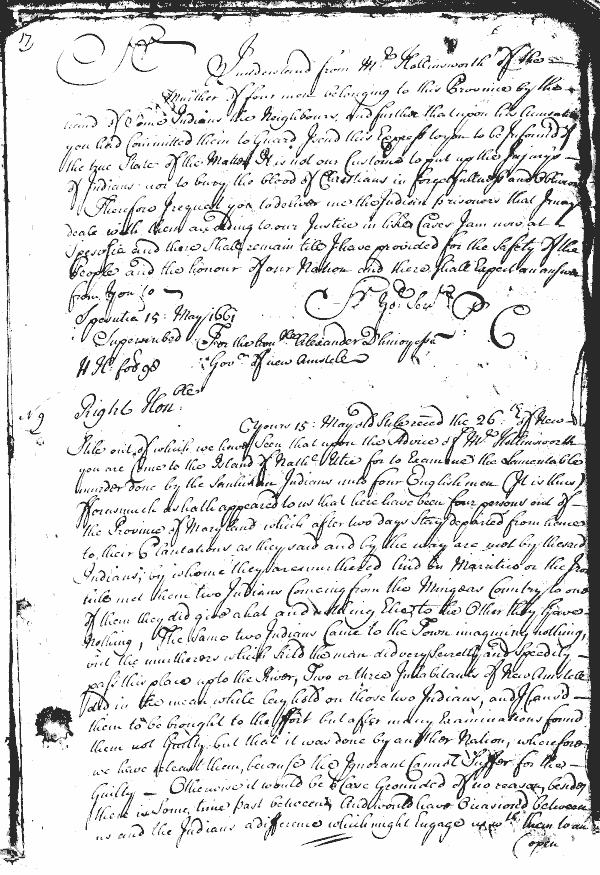 17
Sr
I understand from Mr Hollinsworth of the
Murther of four men belonging to this Province by the
hand of some Indians the Neighbours, and further that upon his
you had Committed them to Guard I send this Express to you to be Informed of
the true State of the Matter It is not our Custome to put up the Injurys
of Indians nor to bury the blood of Christians in forgetfullness and Oblivion
Therefore I request you to deliver me the Indian prisoners that I may
deale with them according to our Justice in like Cases I am now at
Spesutie and there shall remain till I have provided for the Safety of the
People and the honour of our Nation and there shall Expect an answer
from you so
Sr Yor Servt P C
Spesutia 15: May 1661
Superscribed For the honble Alexander Dhinoyessa
H H: fol 98 Govr of new Amstele
No 2
Right Honble:
Yours 15: May old Stile reced the 26th of New
Stile out of which we have Seen that upon the Advice of Mr Hollinsworth
you are Come to the Island of Nathl Utie for to Examine the Lamentable
murder done by the Indians unto four Englishmen (It is thus)
fforasmuch as hath appeared to us that here have been four persons out of
the Province of Maryland which after two days Stay departed from hence
to their Plantations as they said and by the way are met by the said
Indians, by whome they are murthered
met them two Indians Coming from the Country to one
of them they did give a hat and nothing Else to the Other they Gave
Nothing, The same two Indians Came to the Town imagining nothing,
but the murtherers which kild the men did very Secretly and Speedily
past this place up to the River, Two or three Inhabitants of New Amstell
did in the mean while lay hold on those two Indians, and I Causd
them to be brought to the ffort but after many Examinations found
them not Guilty but that it was done by another Nation, wherefore
we have releast them, because the Ignorant Cannot Suffer for the
Guilty — Otherwise it would be Slave Grounded of no reason, besides
there is Some time past between, And would have Ocasioned between
us and the Indians a difference which might Engage us with them to an
open